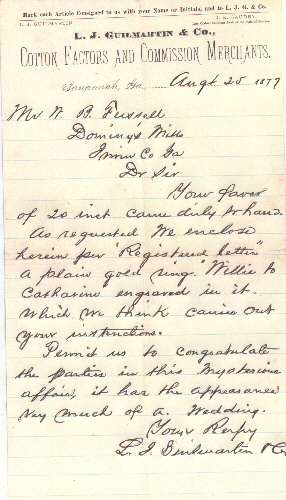 Mark each Article Consigned to us with your Name or Initials, and to L. J. G. & Co.
L. J. GUILMARTIN
L. J. GUILMARTIN & CO.,
COTTON FACTORS AND COMMISSION MERCHANTS.
Savannah, Ga., Augt 25 1877
Mr W. B. Fussell
Domings Mills
Irwin Co Ga
Dr Sir
Your favor
of 20 inst came duly to hand.
As requested We enclose
herein per "Registered letter"
a plain gold ring "Willie to
Catharine engraved in it.
Which we think carries out
your instructions.
Permit us to congratulate
the parties in this mysterious
affair, it has the appearance
very much of a Wedding.
Yours Respy
L. J. Guilmartin & Co